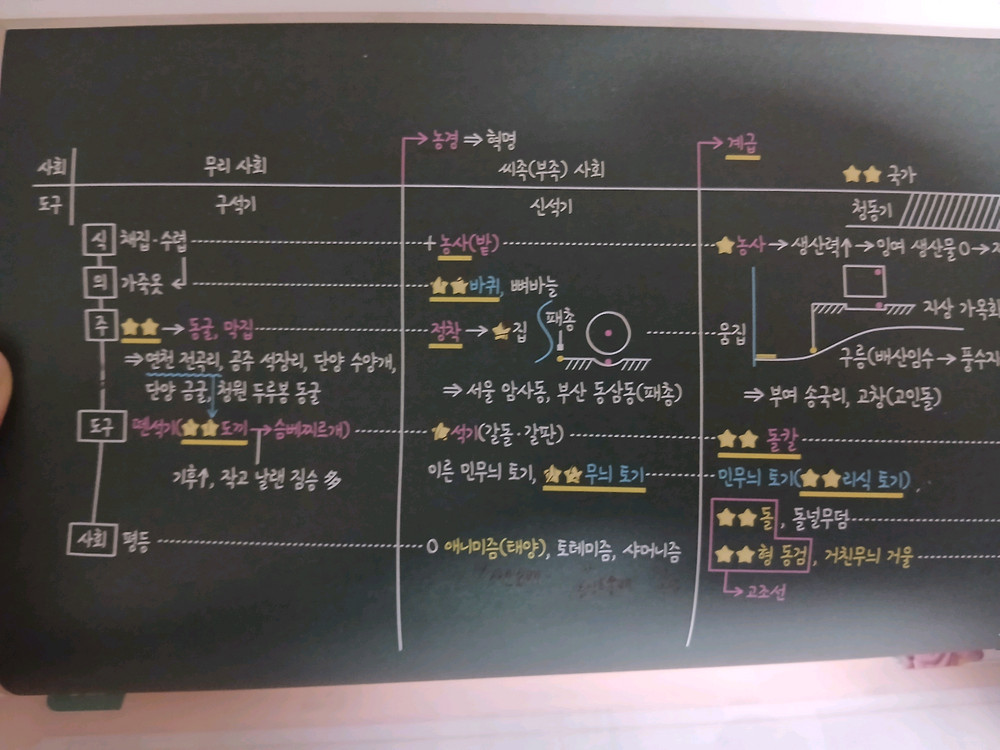 농경 ⇒ 혁명
계급
사회 무리 사회 씨족(부족) 사회 ★★ 국가
도구 구석기 신석기 청동기
식 채집·수렵 + 농사(밭) ★농사 → 생산력↑ → 잉여 생산물 O →
의 가죽옷 ★★바퀴, 뼈바늘
주 ★★ → 동굴, 막집 정착 → ★집 패총 움집 지상 가옥화
⇒ 연천 전곡리, 공주 석장리, 단양 수양개, 구릉(배산임수 → 풍수지
단양 금굴, 청원 두루봉 동굴 ⇒ 서울 암사동, 부산 동삼동(패총) ⇒ 부여 송국리, 고창(고인돌)
도구 뗀석기(★★도끼 → 슴베찌르개) ★석기(갈돌·갈판) ★★ 돌칼
기후↑, 작고 날랜 짐승 多 이른 민무늬 토기, ★★무늬 토기 민무늬 토기(★★리식 토기),
★★돌, 돌널무덤
사회 평등 O 애니미즘(태양), 토테미즘, 샤머니즘 ★★형 동검, 거친무늬 거울
고조선